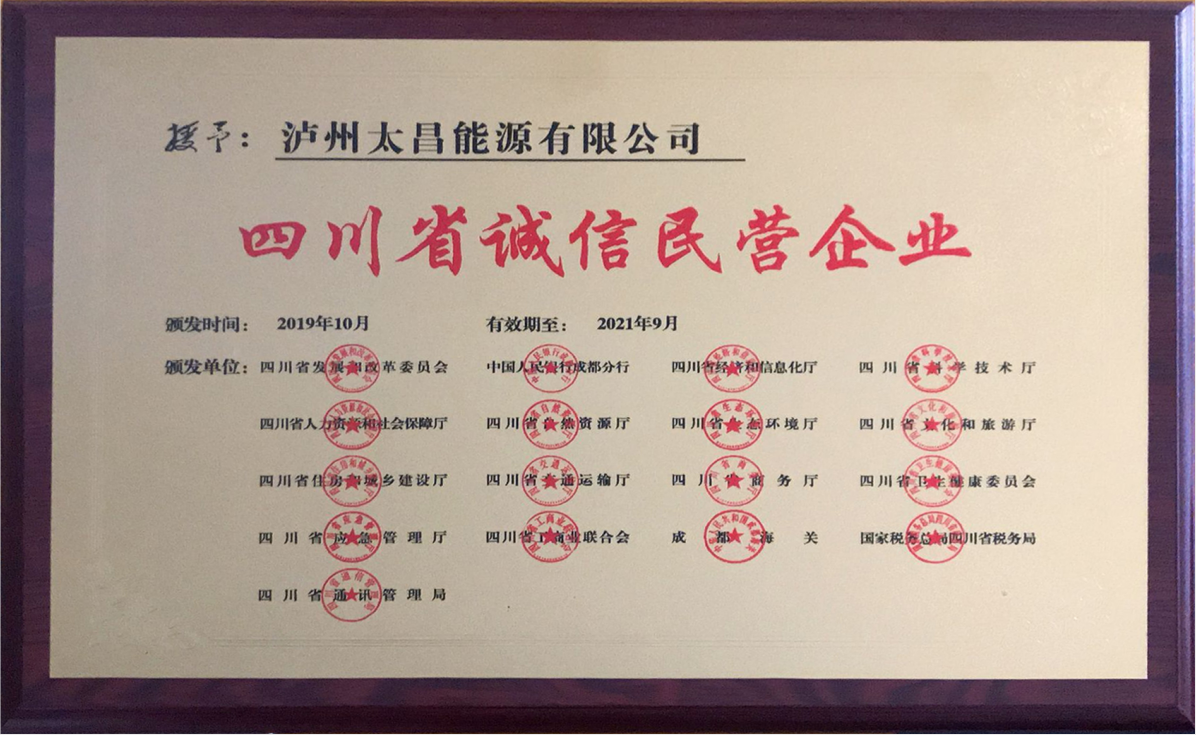 授予：泸州太昌能源有限公司
四川省诚信民营企业
颁发时间：2019年10月 有效期至：2021年9月
颁发单位：四川省发展和改革委员会 中国人民银行成都分行 四川省经济和信息化厅 四川省科学技术厅
四川省人力资源和社会保障厅 四川省自然资源厅 四川省生态环境厅 四川省文化和旅游厅
四川省住房和城乡建设厅 四川省交通运输厅 四川省商务厅 四川省卫生健康委员会
四川省应急管理厅 四川省工商业联合会 成都海关 国家税务总局四川省税务局
四川省通讯管理局